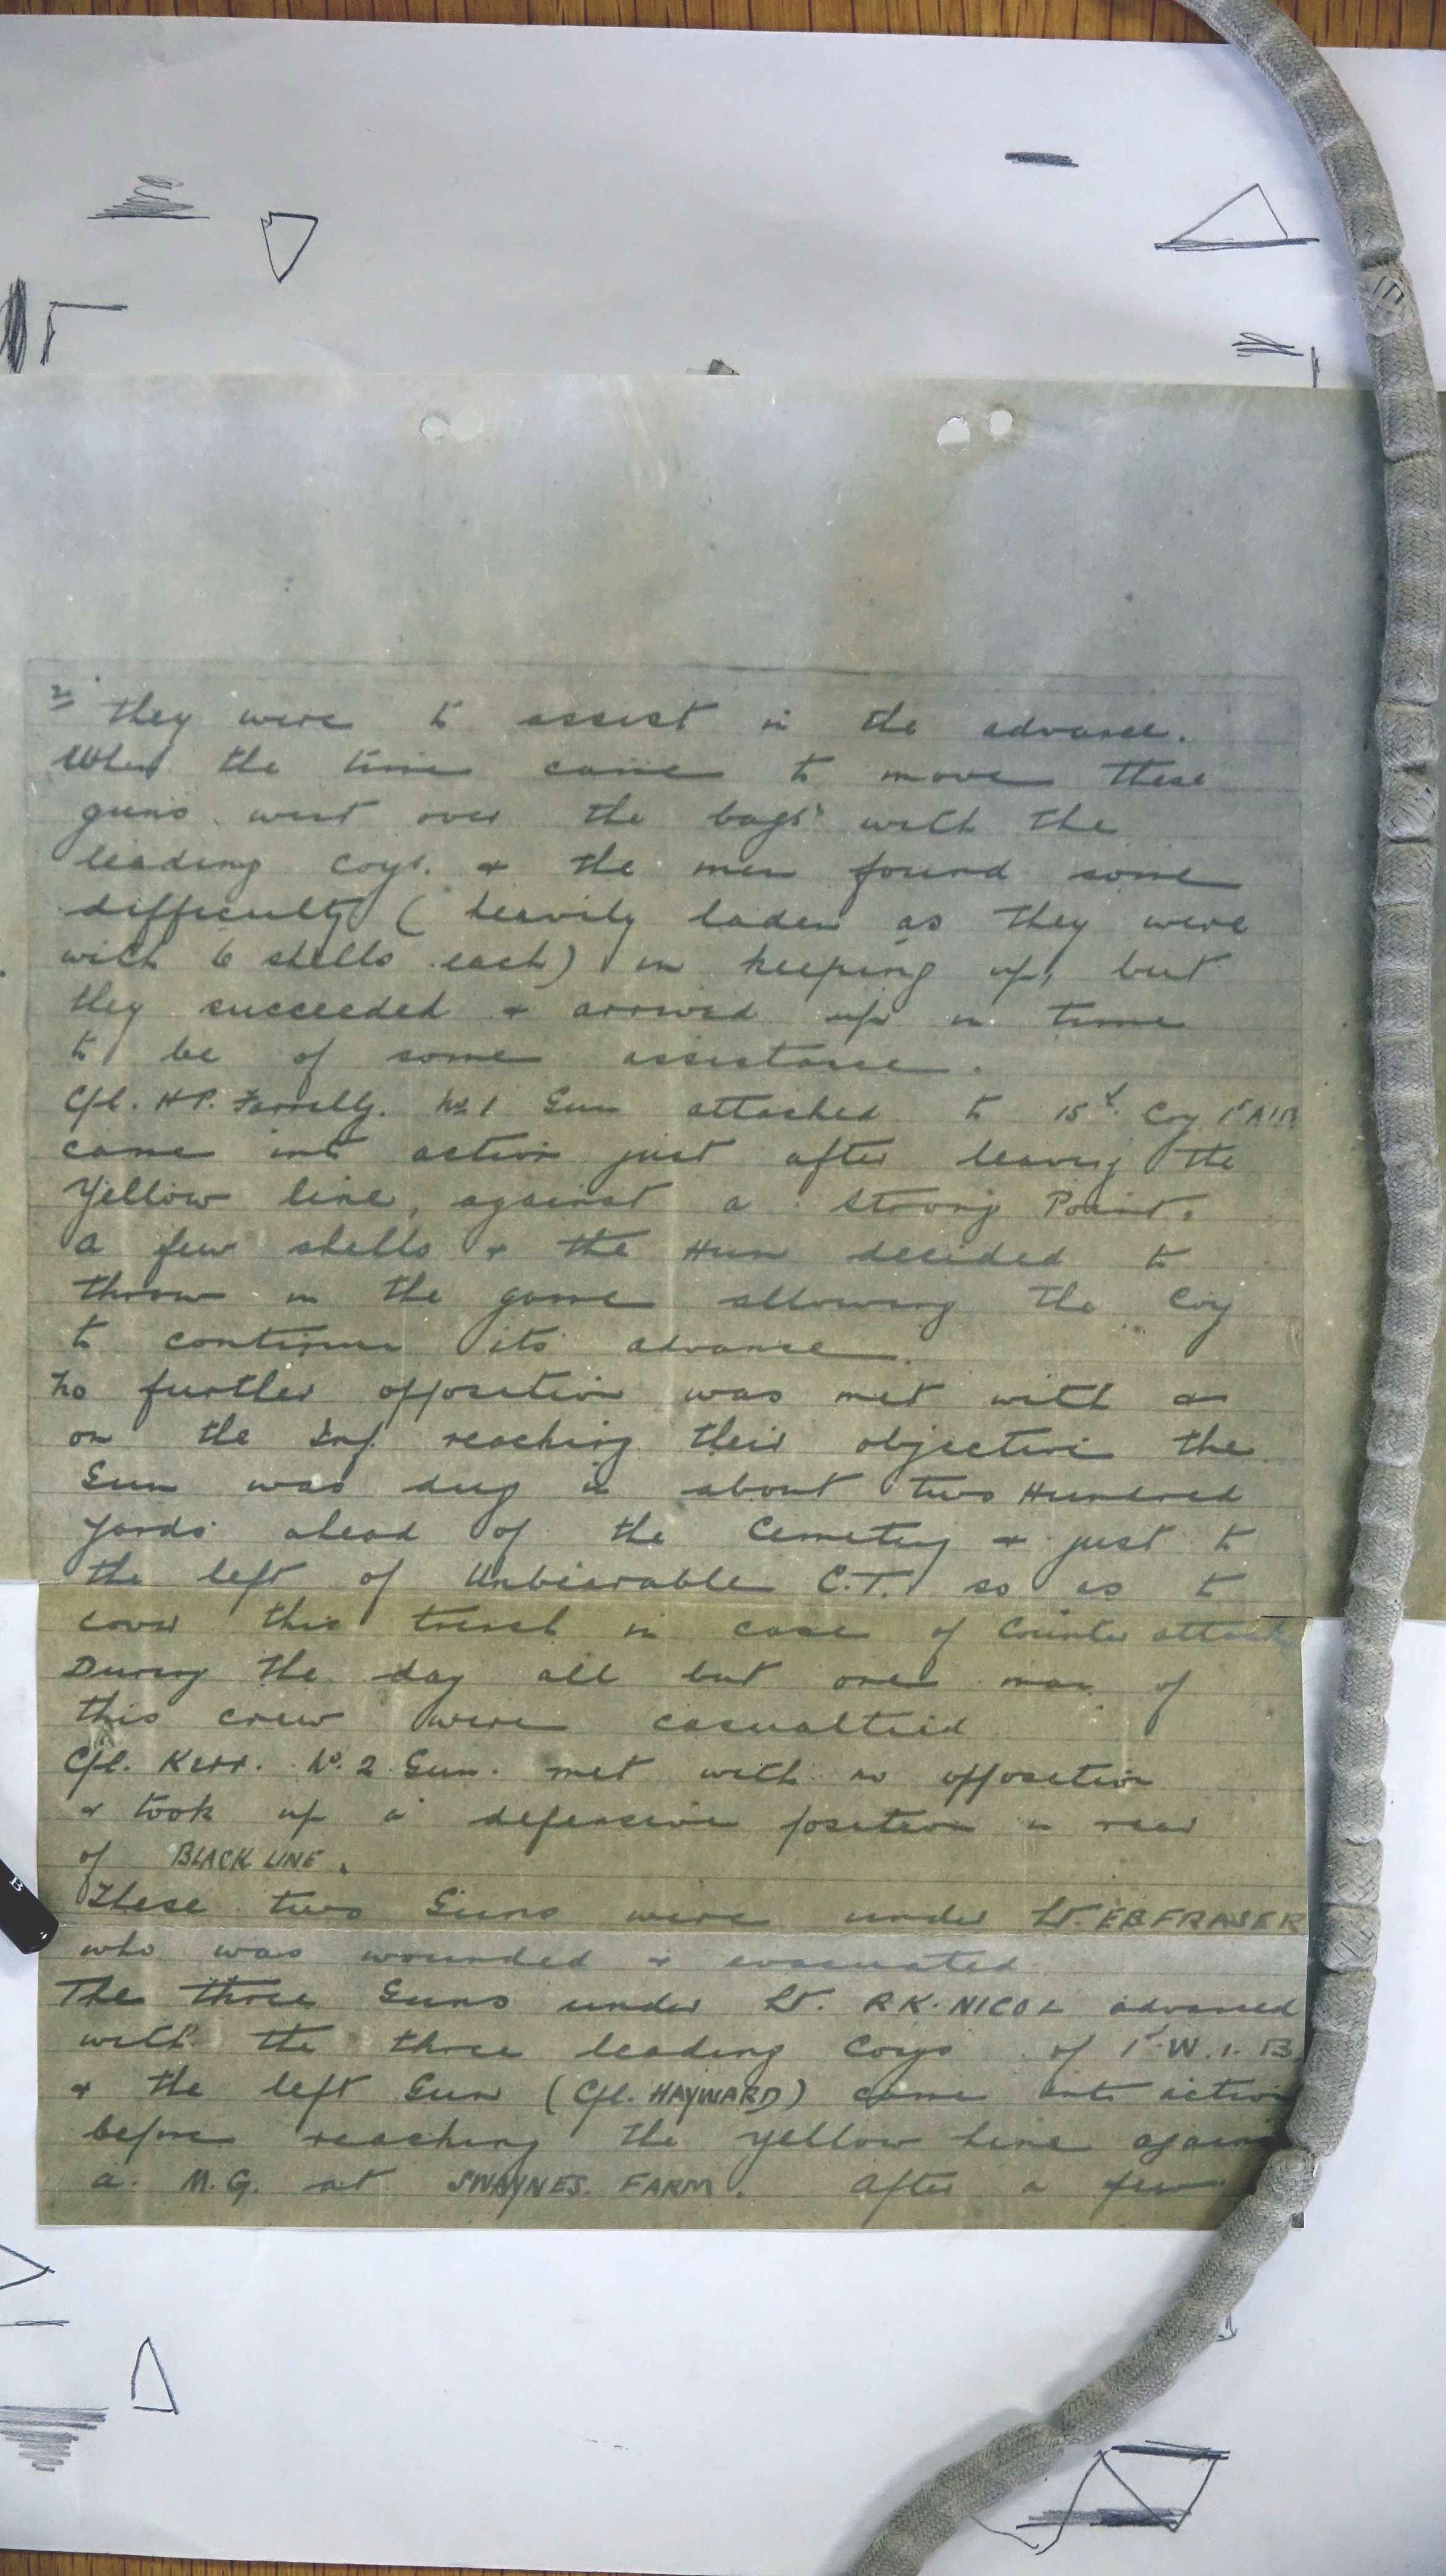 2/ they were to assist in the advance.
When the time came to move these
guns went over the bags with the
leading coys. & the men found some
difficulty (heavily laden as they were
with 6 shells each) in keeping up, but
they succeeded & arrived up in time
to be of some assistance.
Cpl. HP. Farrelly. No.1 Gun attached to 15th Coy 1st AIB
came into action just after leaving the
Yellow line, against a Strong Point.
A few shells & the Hun decided to
throw in the game allowing the Coy
to continue its advance.
No further opposition was met with &
on the Inf. reaching their objective the
Gun was dug in about two Hundred
Yards ahead of the Cemetery & just to
the left of Unbearable C.T. so as to
cover this trench in case of Counter attack
During the day all but one man of
this crew were casualtied
Cpl. Kerr. No. 2 Gun. met with no opposition
& took up a defensive position in rear
of BLACK LINE.
These two Guns were under Lt. EB FRASER
who was wounded & evacuated
The three Guns under Lt. RK. NICOL advanced
with the three leading Coys of 1st W.I.B
& the left Gun (Cpl. HAYWARD) came into action
before reaching the yellow line against
a. M.G. at SWAYNES. FARM. After a few
B